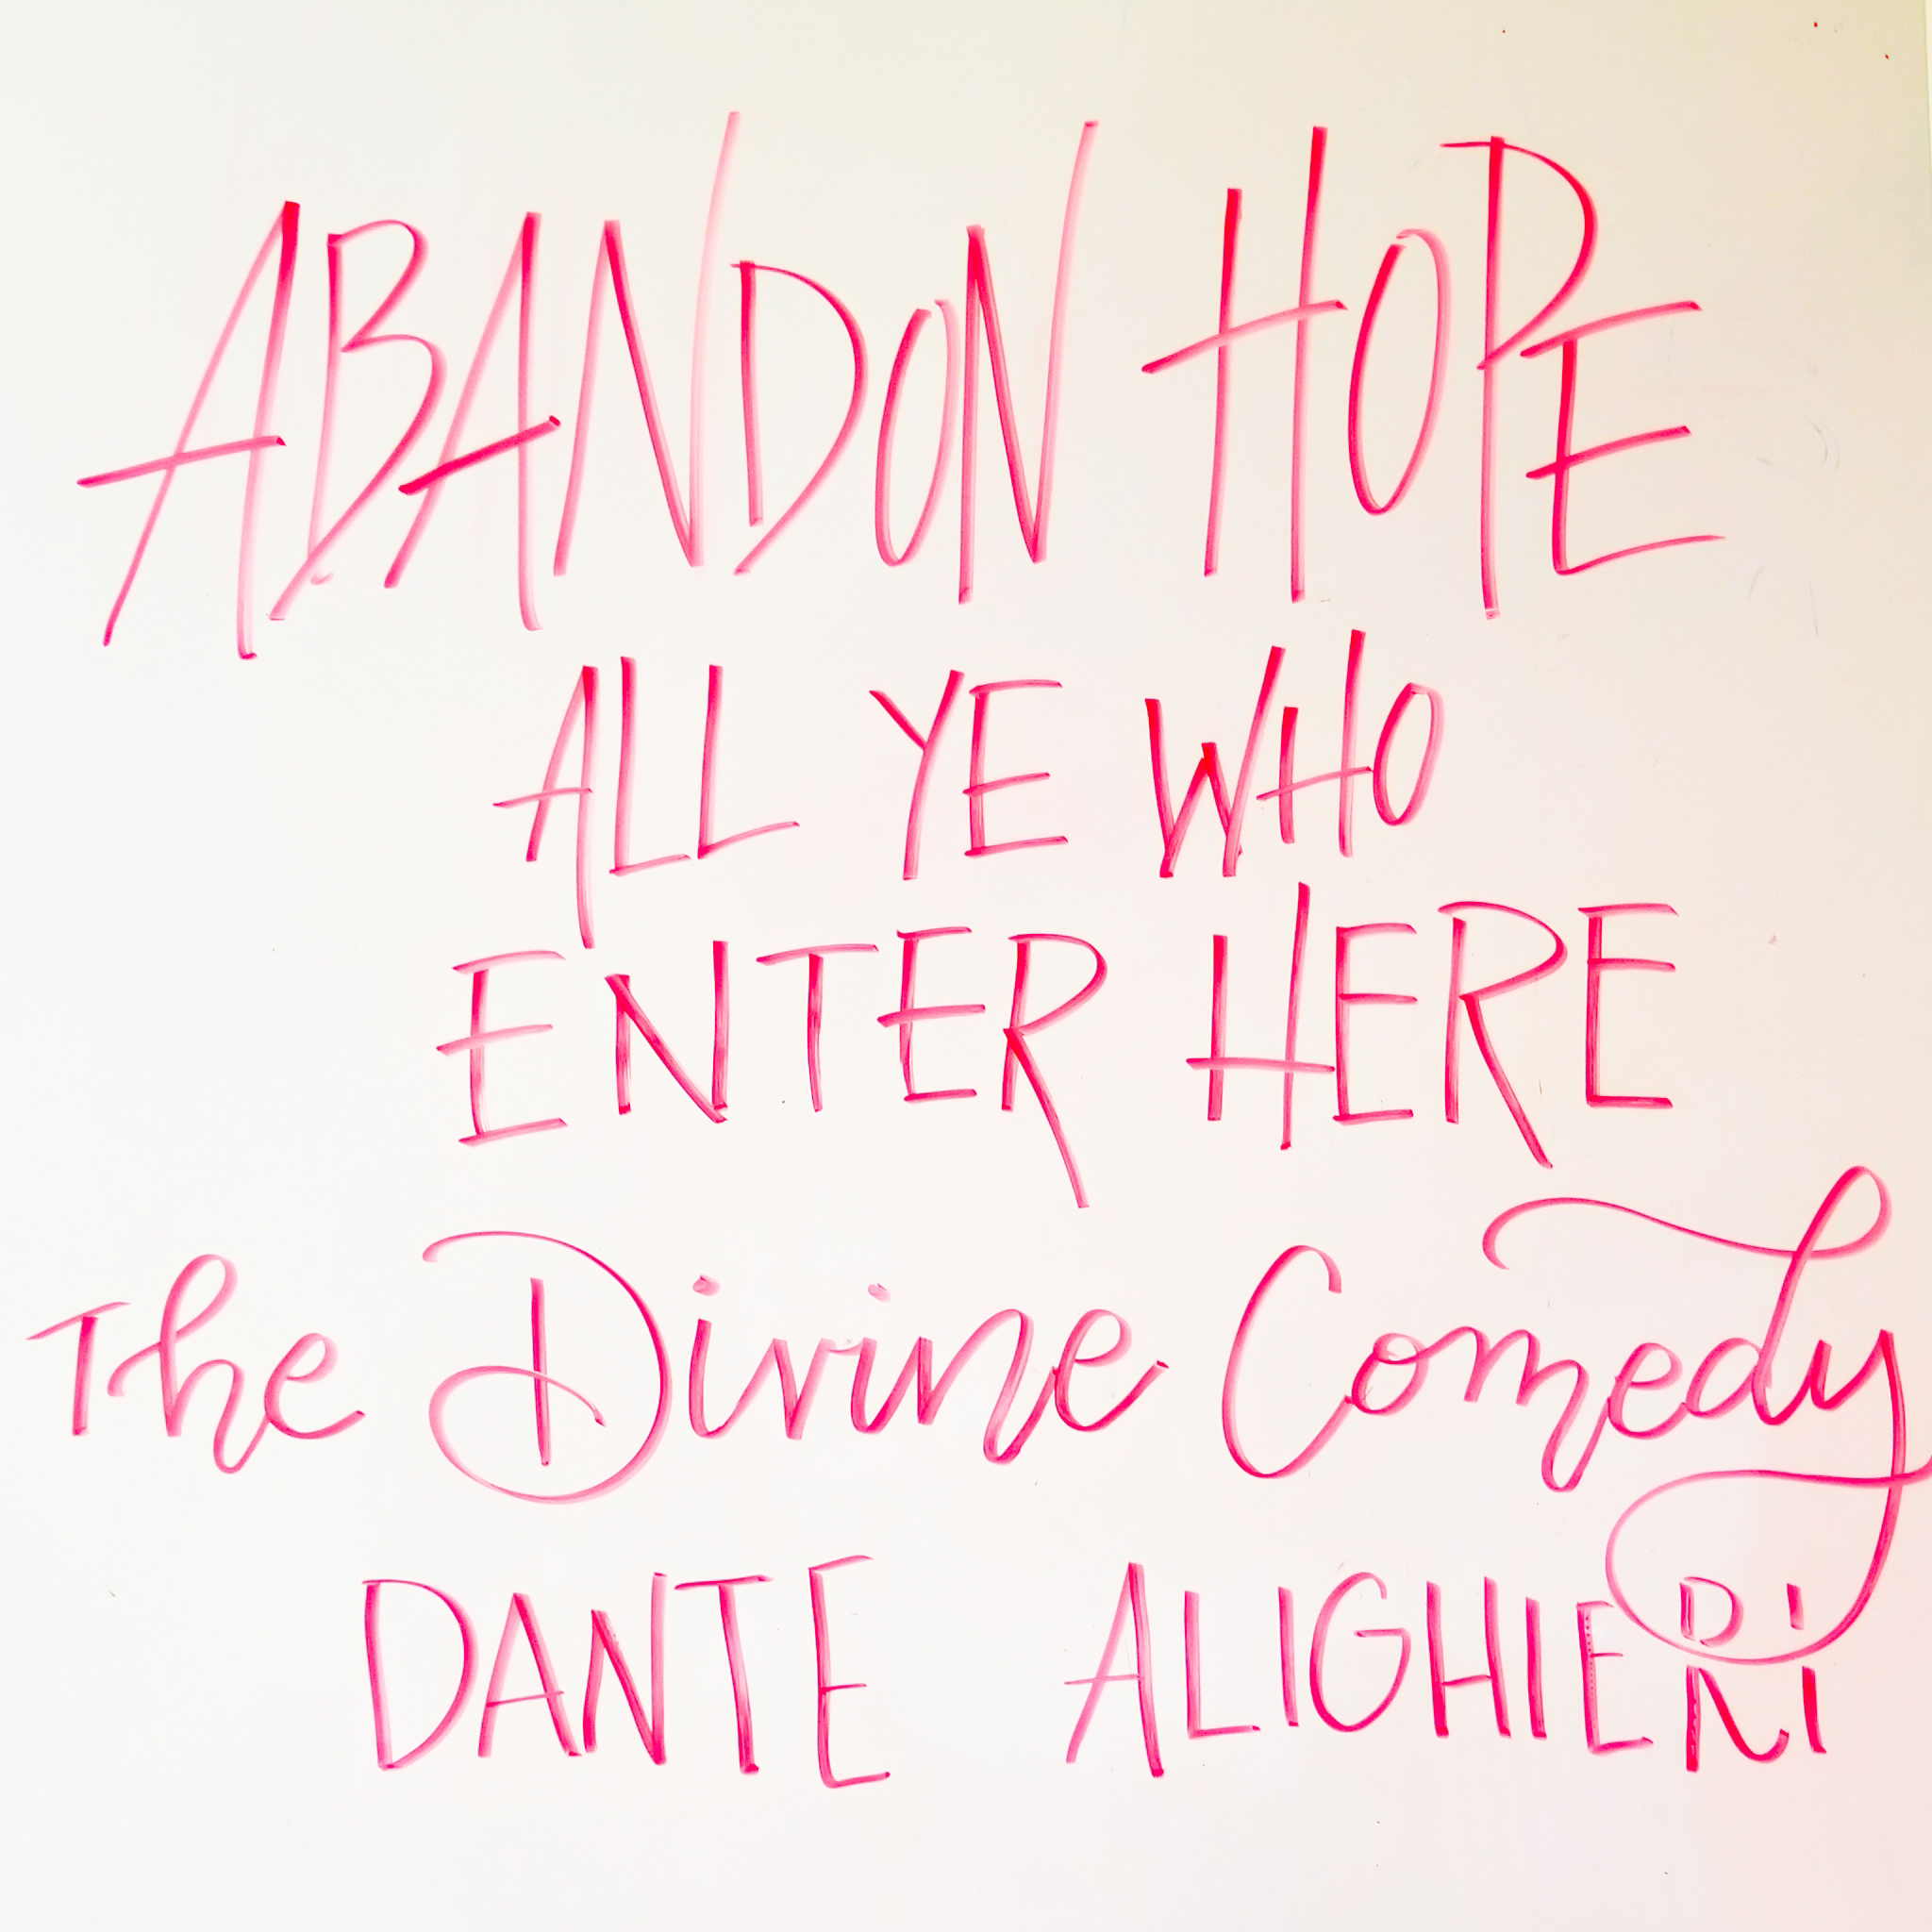 ABANDON HOPE
ALL YE WHO
ENTER HERE
The Divine Comedy
DANTE ALIGHIERI